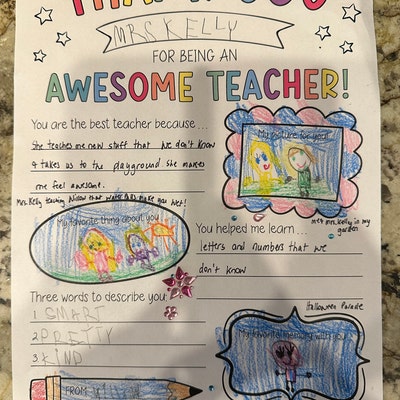 THANK YOU
MRS KELLY
FOR BEING AN
AWESOME TEACHER!
You are the best teacher because...
She teaches me new stuff that we don't know
& takes us to the playground. She makes
me feel awesome.
My picture for you
met Mrs. Kelly in my
garden
Mrs. Kelly teaching Willow that water does make you wet!
My favorite thing about you
You helped me learn...
letters and numbers that we
don't know
Three words to describe you:
1 SMART
2 PRETTY
3 KIND
Halloween Parade
My favorite memory with you
FROM